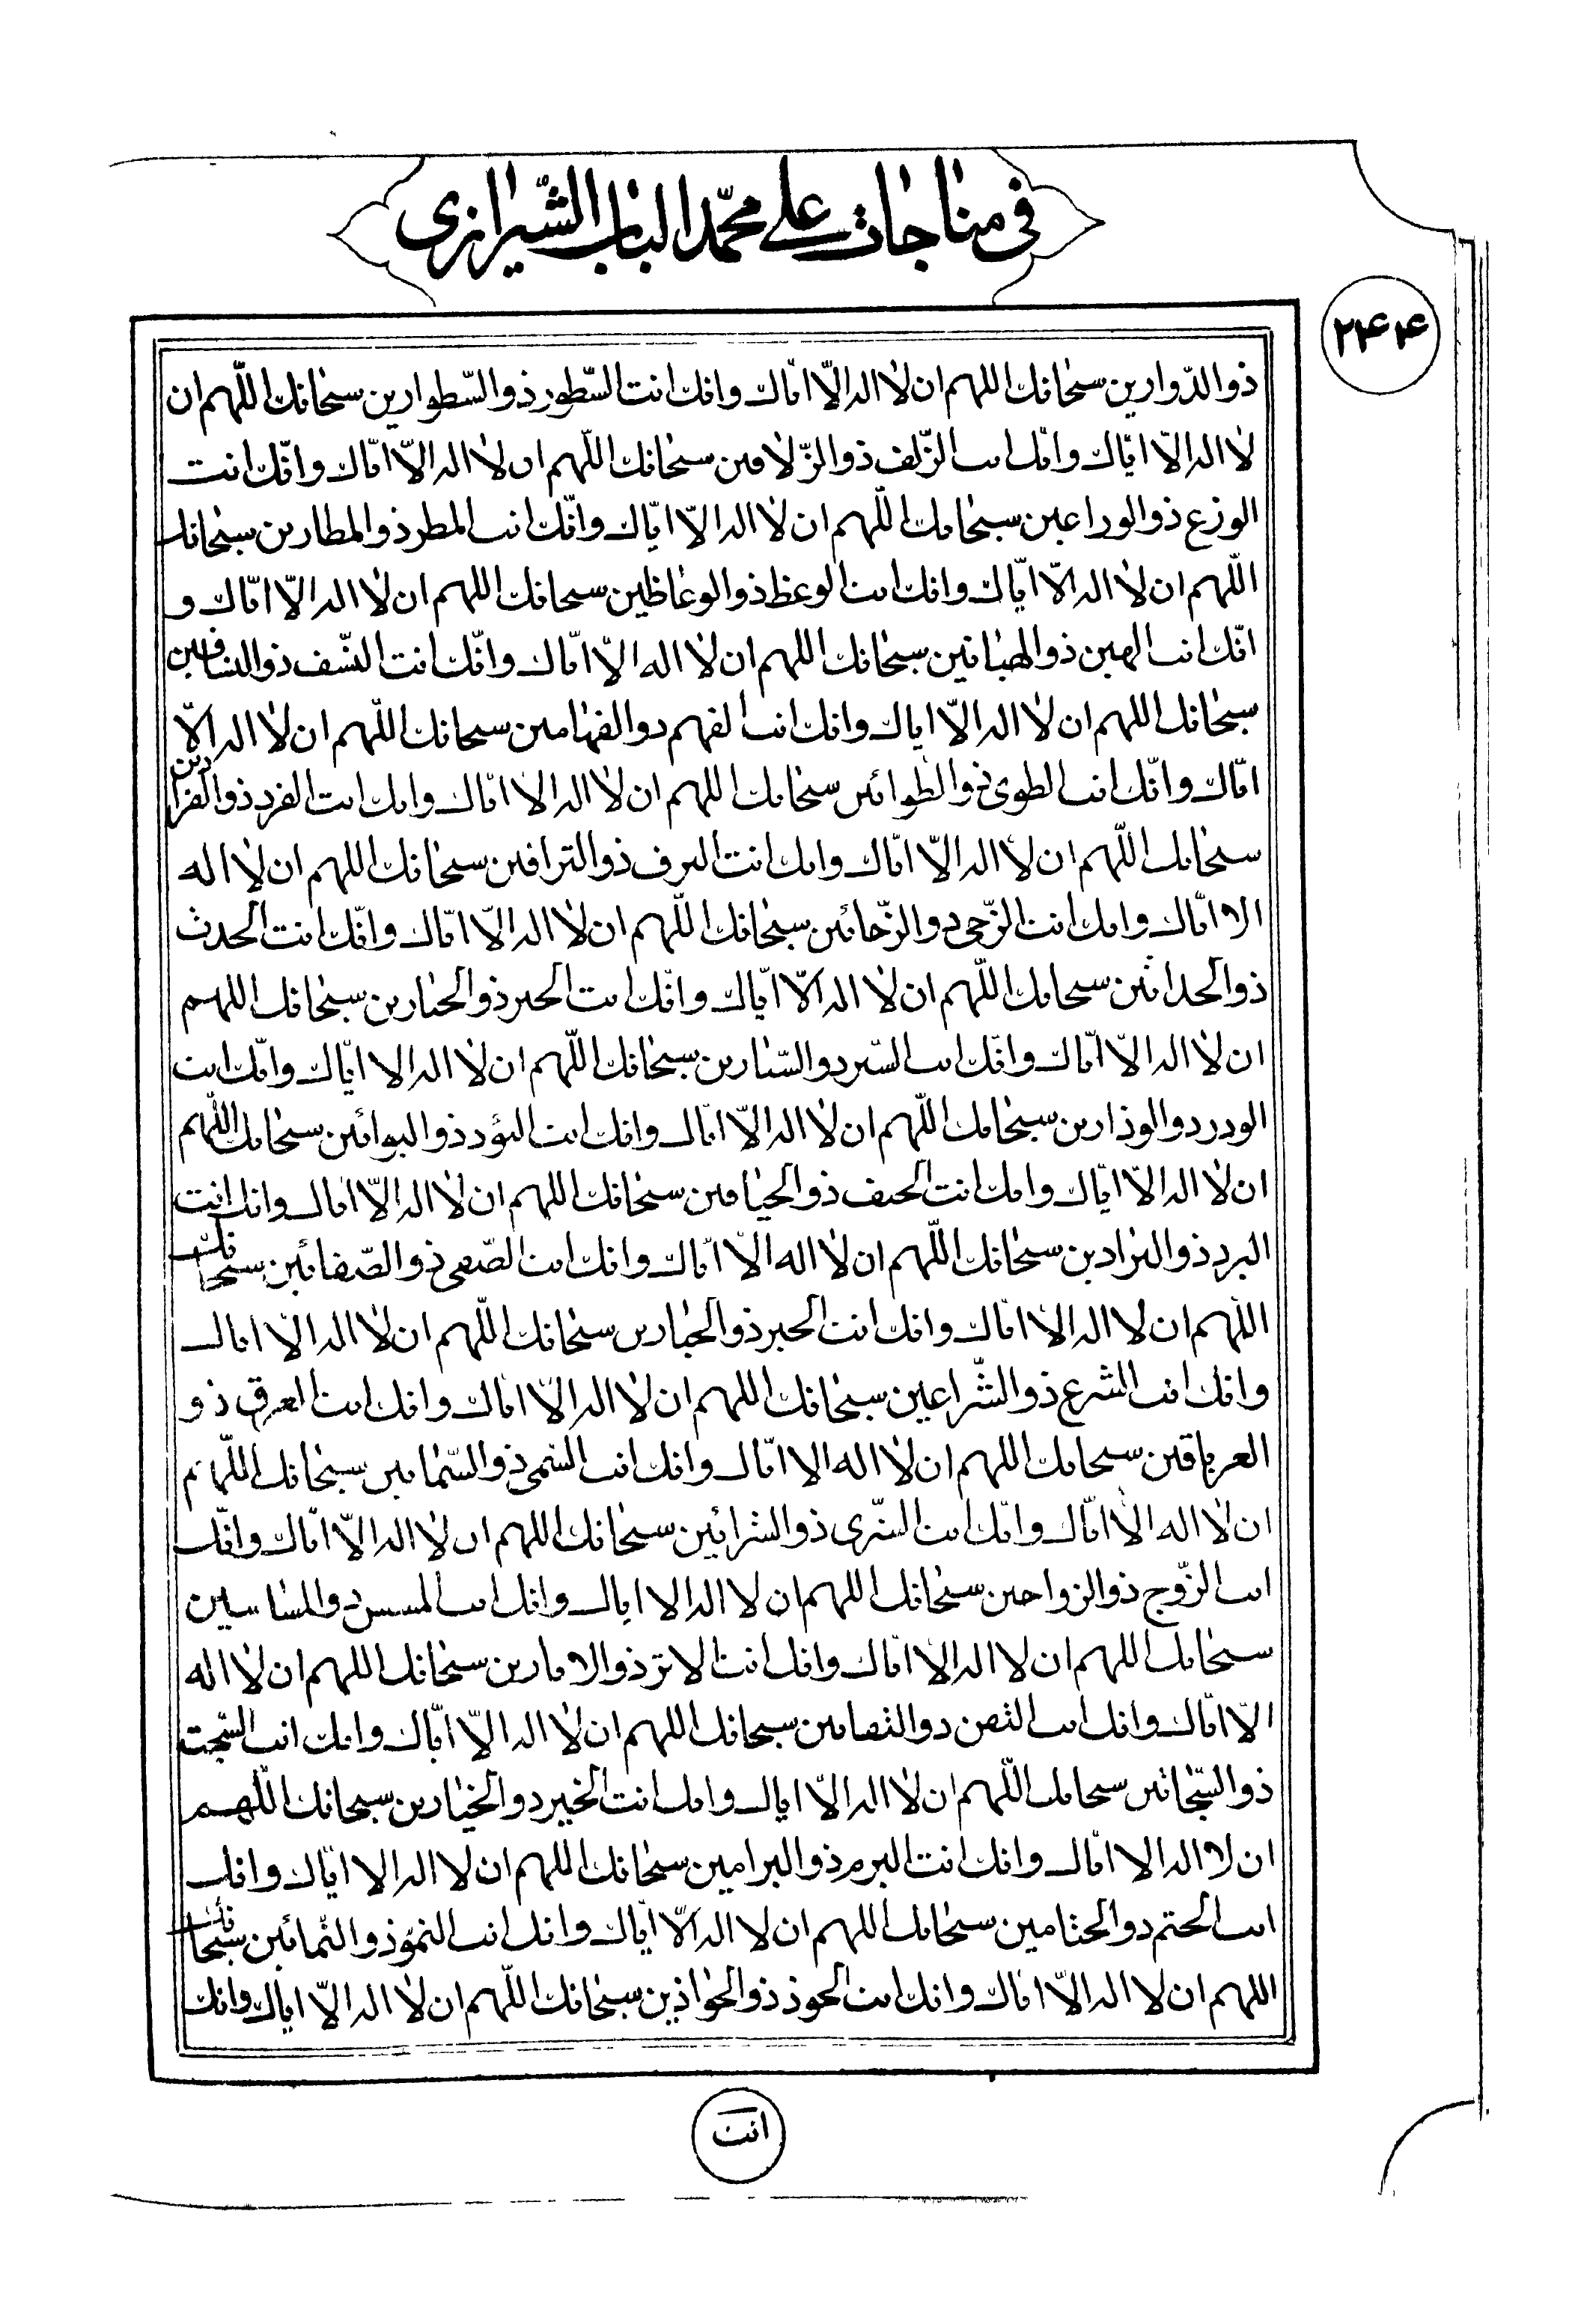 في مناجات علي محمّد الباب الشّيرازي
٢٤٤
ذوالدّوارين سبحانك اللهم ان لا اله الّا ايّاك وانك انت السّطور ذوالسّطوارين سبحانك اللّهم ان
لا اله الّا ايّاك وانّك انت الزّلف ذوالزّلافين سبحانك اللّهم ان لا اله الّا ايّاك وانّك انت
الوزع ذوالوزاعين سبحانك اللّهم ان لا اله الّا ايّاك وانّك انت المطر ذوالمطارين سبحانك
اللّهم ان لا اله الّا ايّاك وانك انت الوعظ ذوالوعاظين سبحانك اللهم ان لا اله الّا ايّاك و
انّك انت الهين ذوالهيانين سبحانك اللهم ان لا اله الّا ايّاك وانّك انت النّسف ذوالنسافين
سبحانك اللهم ان لا اله الّا اياك وانك انت الفهم ذوالفهامين سبحانك اللّهم ان لا اله الّا
ايّاك وانّك انت الطوي ذوالطوائين سبحانك اللهم ان لا اله الا ايّاك وانك انت الفرد ذوالفرادين
سبحانك اللّهم ان لا اله الّا ايّاك وانك انت ذوالترافين سبحانك اللهم ان لا اله
الا ايّاك وانك انت الزّجي ذوالزّجائين سبحانك اللّهم ان لا اله الّا ايّاك وانّك انت الحدث
ذوالحداثين سبحانك اللّهم ان لا اله الّا ايّاك وانّك انت ذوالحبارين سبحانك اللهم
ان لا اله الّا ايّاك وانّك انت الستر ذوالستارين سبحانك اللّهم ان لا اله الا ايّاك وانّك انت
الوذر ذوالوذارين سبحانك اللّهم ان لا اله الّا ايّاك وانك انت ذوالبوائين سبحانك اللّهم
ان لا اله الّا ايّاك وانك انت الحيف ذوالحيافين سبحانك اللهم ان لا اله الّا اياك وانك انت
البرد ذوالبرادين سبحانك اللّهم ان لا اله الّا ايّاك وانك انت الصّفي ذوالصّفائين سبحانك
اللّهم ان لا اله الّا ايّاك وانك انت الجبر ذوالجبارين سبحانك اللّهم ان لا اله الّا اياك
وانك انت الشرع ذوالشّراعين سبحانك اللهم ان لا اله الّا ايّاك وانك انت العرق ذو
العراقين سبحانك اللهم ان لا اله الا ايّاك وانك انت السّمي ذوالسّمائين سبحانك اللّهم
ان لا اله الّا ايّاك وانّك انت السّري ذوالسّرائين سبحانك اللهم ان لا اله الّا ايّاك وانّك
انت الزّوج ذوالزواجين سبحانك اللهم ان لا اله الا اياك وانك انت المسس ذوالمساسين
سبحانك اللهم ان لا اله الّا ايّاك وانك انت ذو سبحانك اللهم ان لا اله
الّا ايّاك وانك انت ذو سبحانك اللهم ان لا اله الّا ايّاك وانك انت
ذو سبحانك اللّهم ان لا اله الّا اياك وانك انت الخير ذوالخيارين سبحانك اللّهم
ان لا اله الا ايّاك وانك انت البرم ذوالبرامين سبحانك اللهم ان لا اله الا ايّاك وانك
انت الختم ذوالختامين سبحانك اللهم ان لا اله الّا ايّاك وانك انت النموّ ذوالنّمائين سبحانك
اللهم ان لا اله الّا ايّاك وانك انت الحوذ ذوالحواذين سبحانك اللّهم ان لا اله الّا اياك وانك
انت